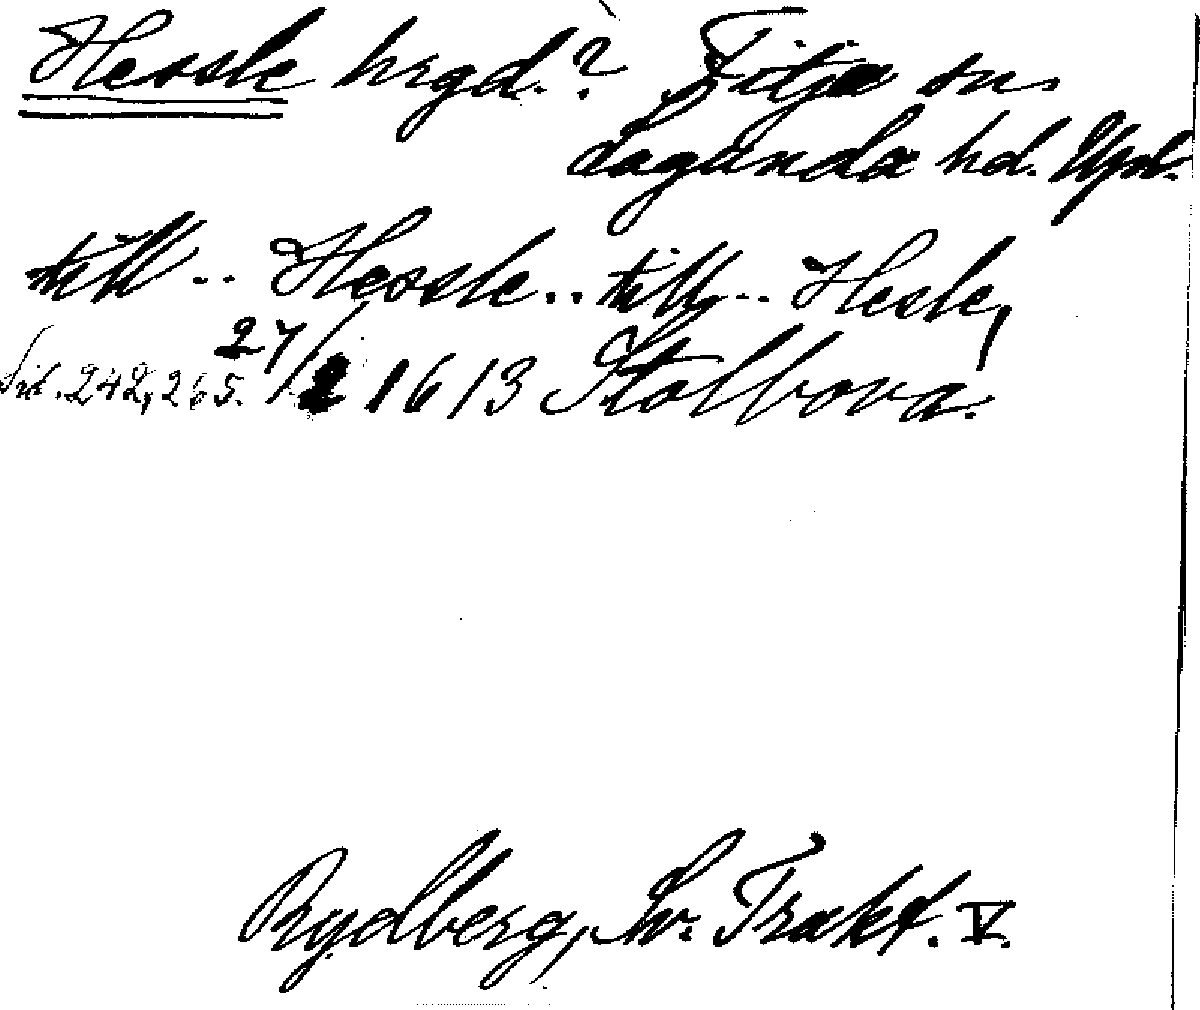 Hessle hrgd.? Fitja sn
Lagunda hd. Upl.
till .. Hessle .. till .. Hesle,
Sid. 242, 265. 27/2 1613 Stolbova.
Rydberg, Sv. Trakt. V.